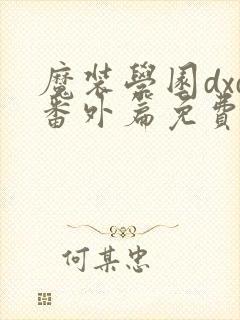 魔装學園dxd
番外篇免費
何某忠